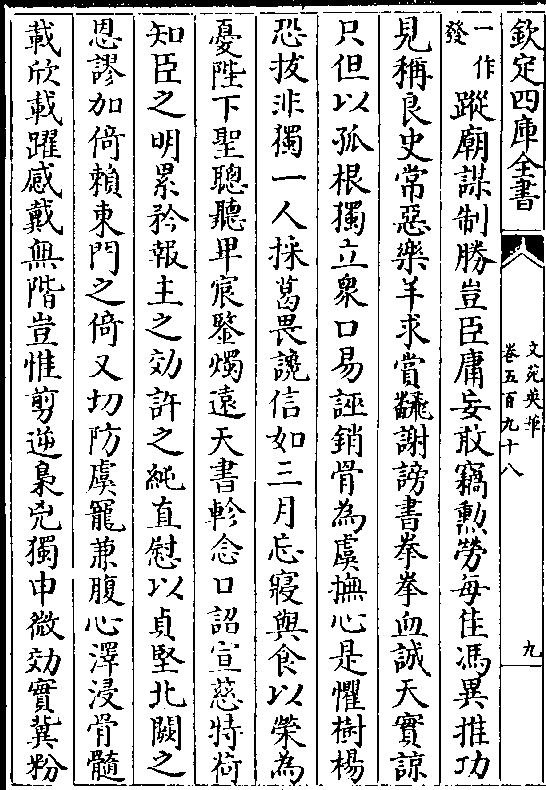 欽定四庫全書
文苑英華
卷五百九十八
九
一作發蹤廟謀制勝豈臣庸妄敢竊勲勞每佳馮異推功
見稱良史常惡樂羊求賞飜謝謗書拳拳血誠天實諒
只但以孤根獨立衆口易誣銷骨為虞撫心是懼樹楊
恐拔非獨一人採葛畏讒信如三月忘寢與食以榮為
憂陛下聖聰聽卑宸鑒燭遠天書軫念口詔宣慈特荷
知臣之明累矜報主之効許之純直慰以貞堅北闕之
恩謬加倚賴東門之倚又切防虞寵兼腹心澤浸骨髓
載欣載躍感戴無階豈惟剪逆梟兇獨申微効實冀粉